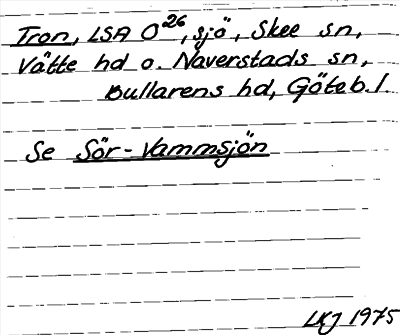 Tron, LSA O26, sjö, Skee sn,
Vätte hd o. Naverstads sn,
Bullarens hd, Göteb. l.
Se Sör-Vammsjön
LKJ 1975